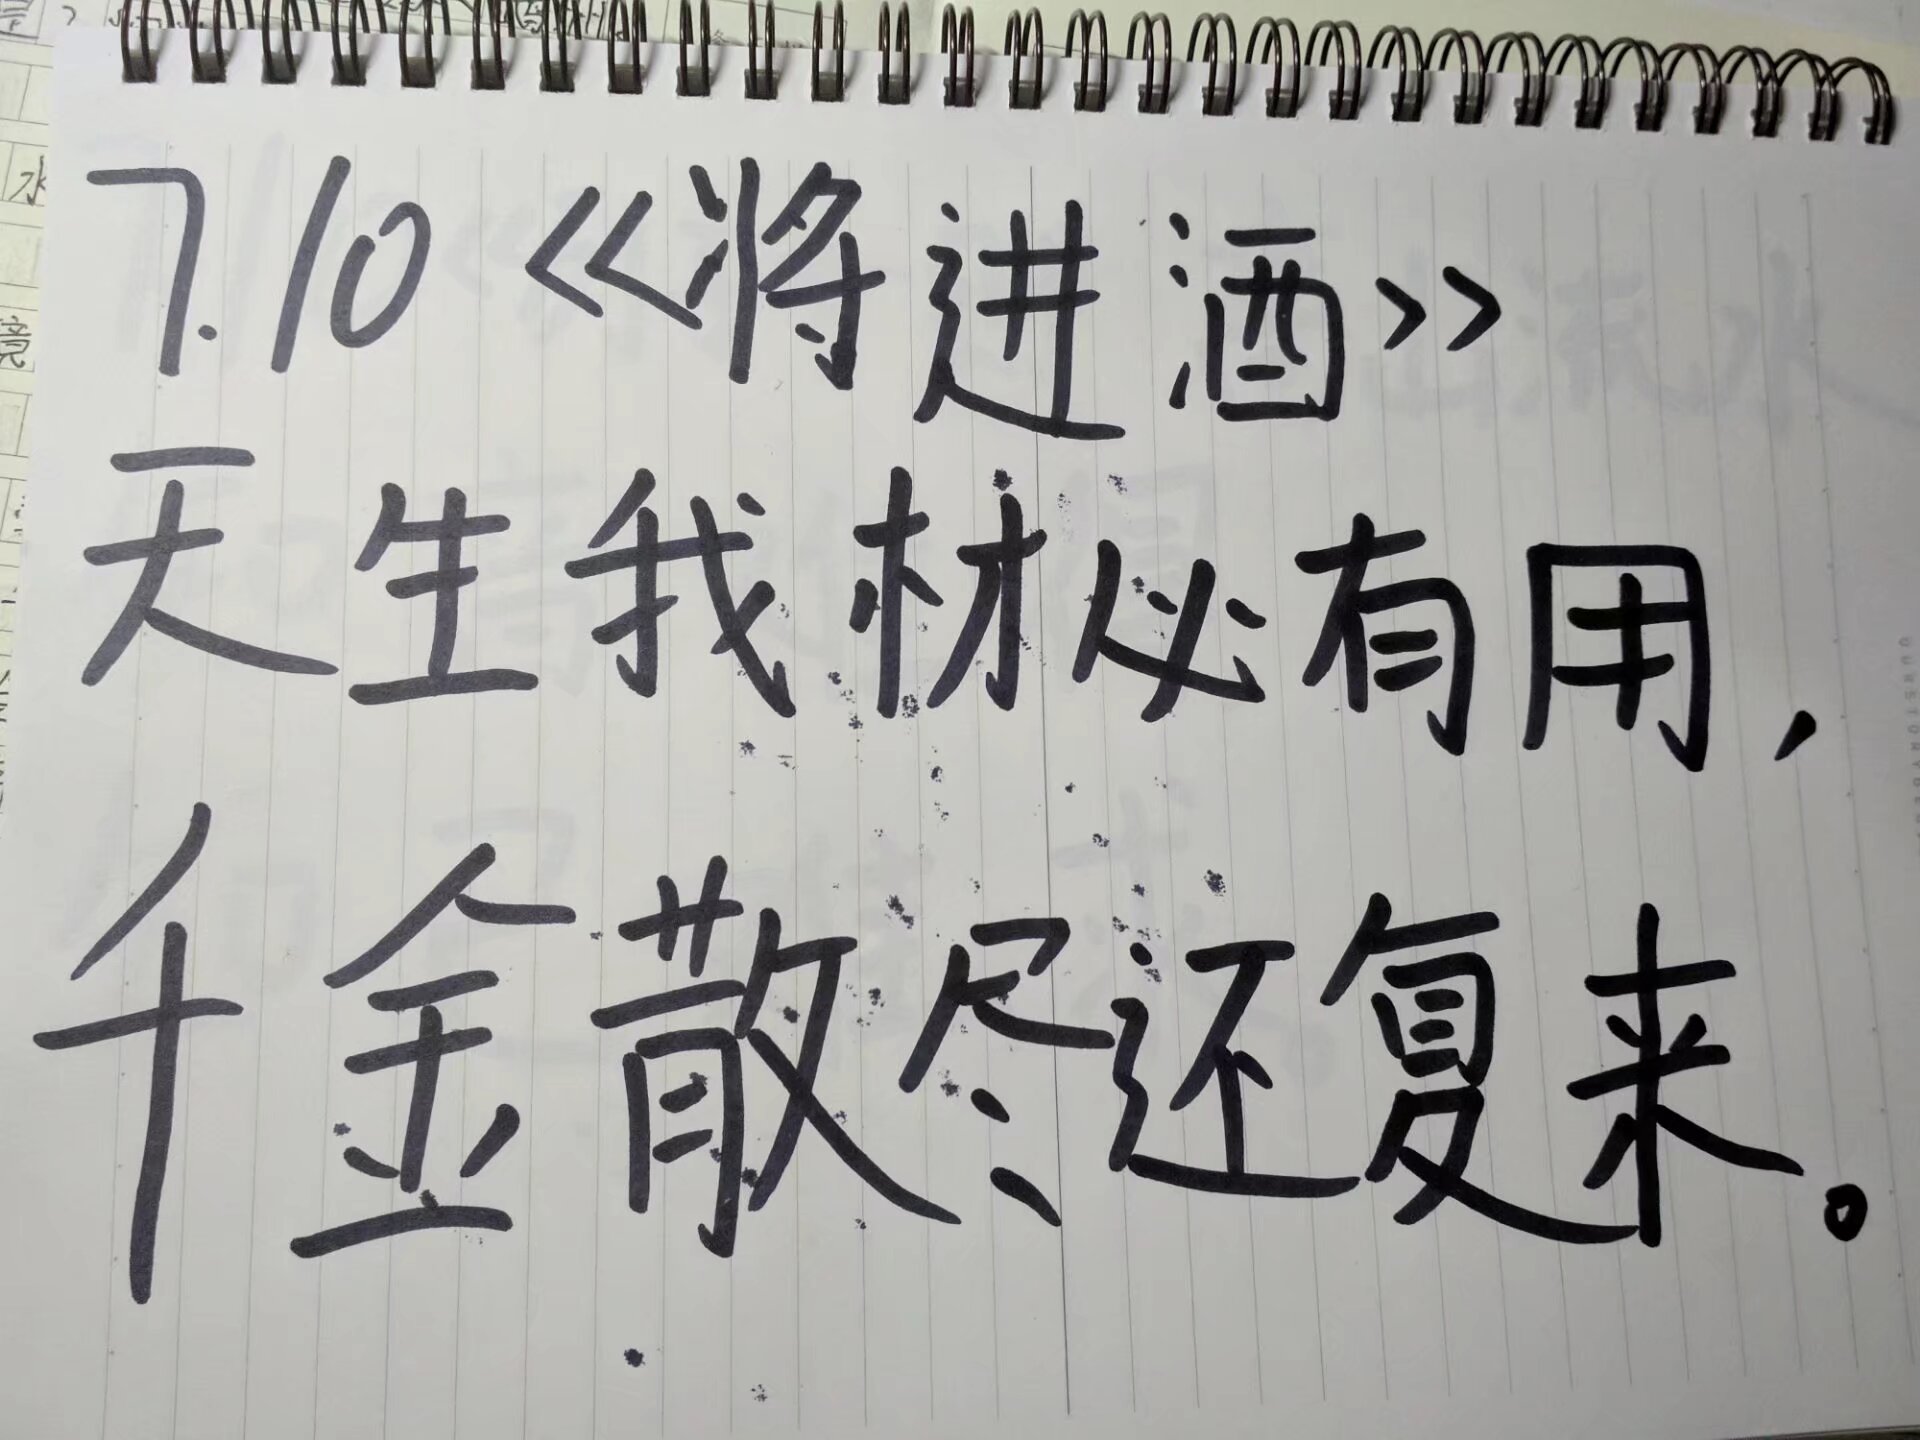 7.10《将进酒》
天生我材必有用，
千金散尽还复来。